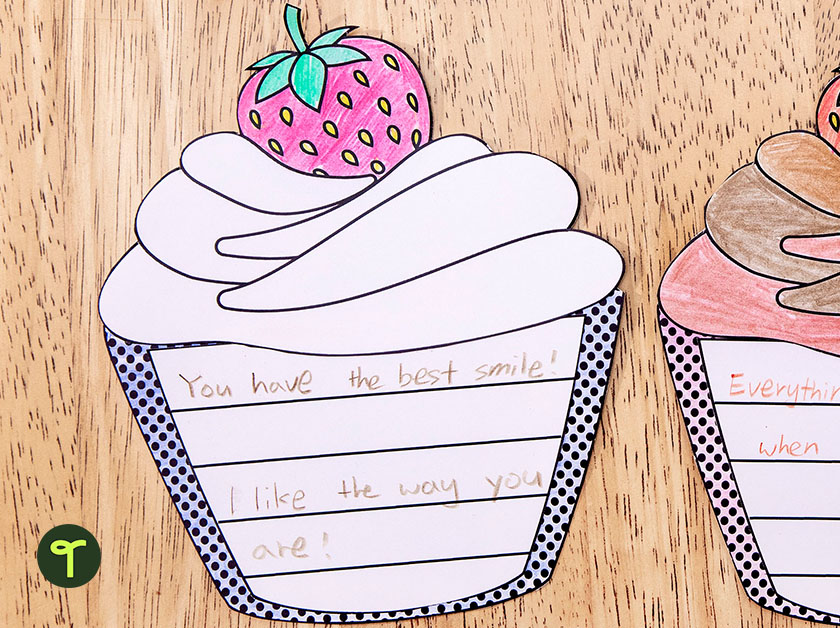 You have the best smile!
I like the way you
are!
when